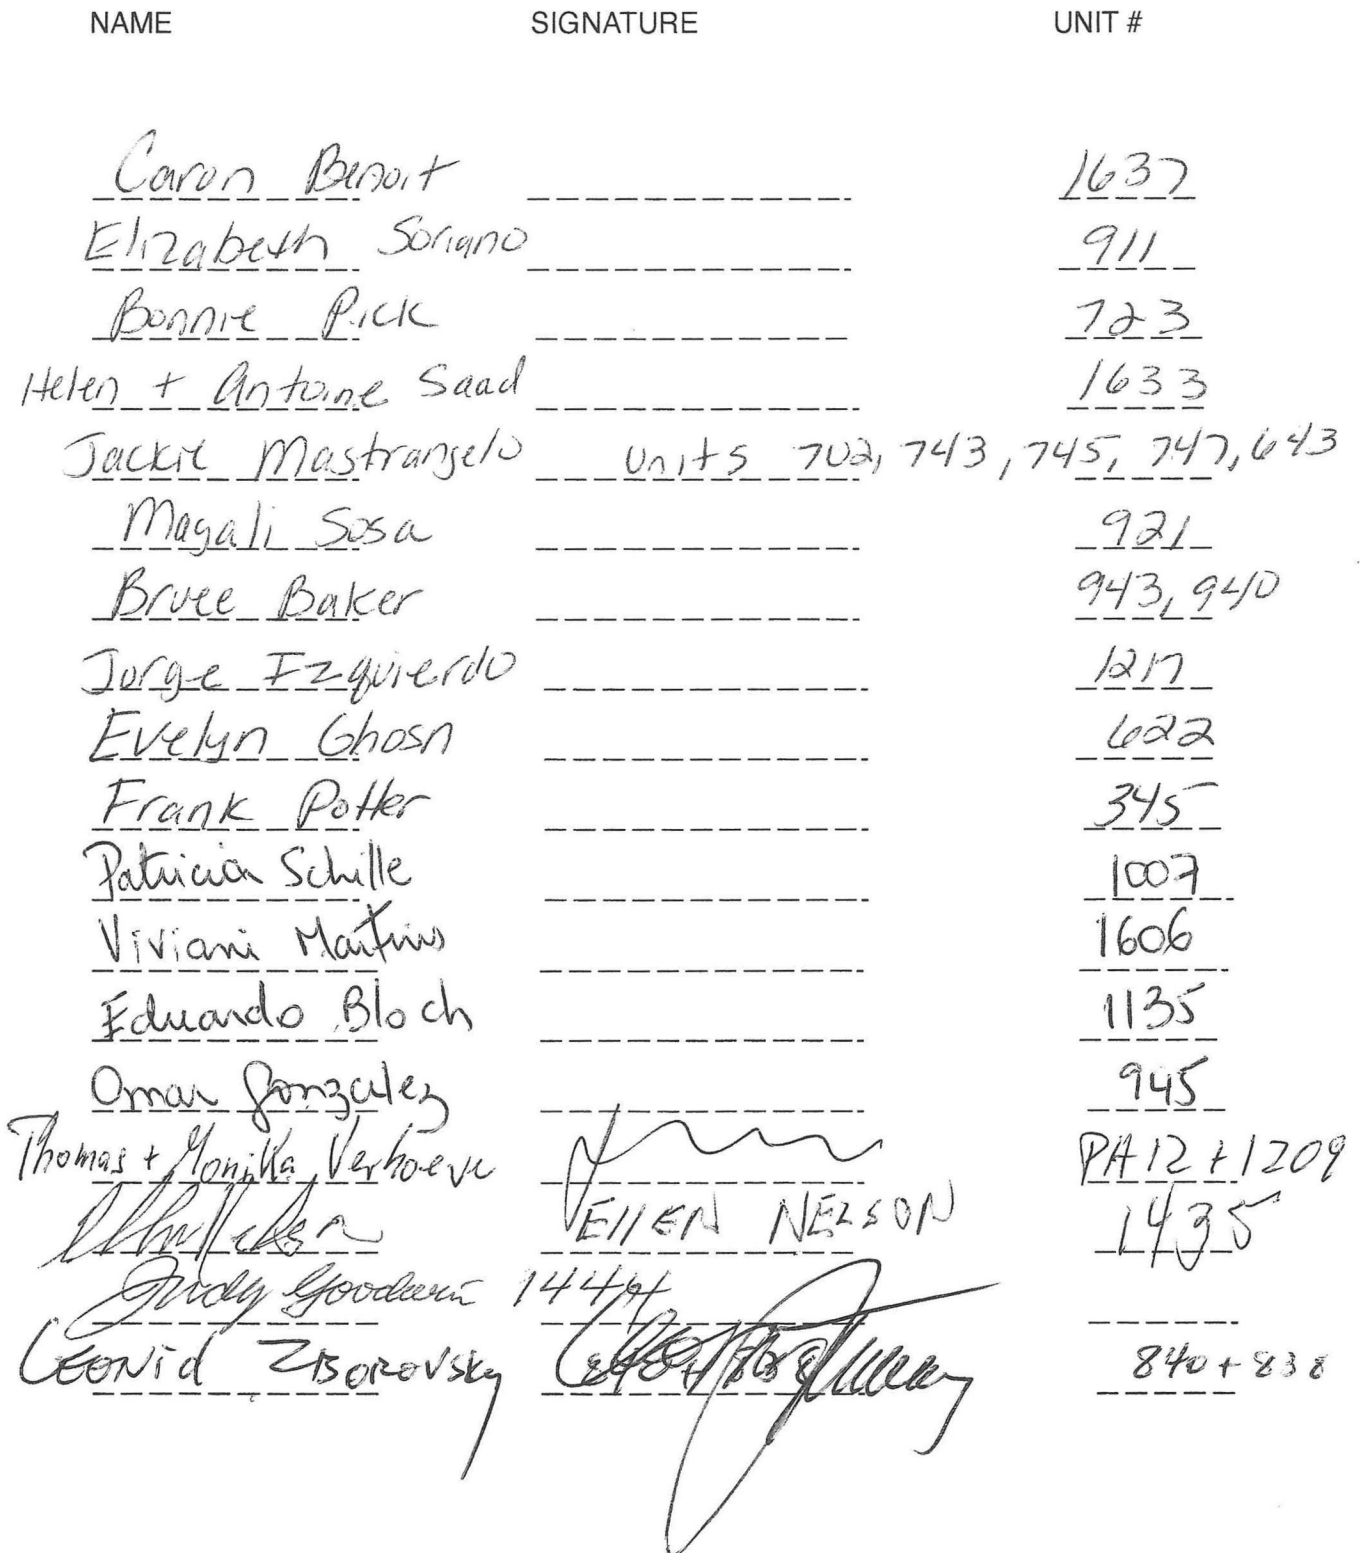 NAME SIGNATURE UNIT #
Caron Benoit 1637
Elizabeth Soriano 911
Bonnie Pick 723
Helen + Antoine Saad 1633
Jackie Mastrangelo units 702, 743, 745, 747, 643
Magali Sosa 921
Bruce Baker 943, 940
Jorge Izquierdo 1217
Evelyn Ghosn 622
Frank Potter 345
Patricia Schille 1007
Viviani Martins 1606
Eduardo Bloch 1135
Omar Gonzalez 945
Thomas + Monika Verhoeve PH 12 + 1209
EllEN NELSON 1435
Judy Goodwin 1444
LEONid ZBOROVSky 840 + 838